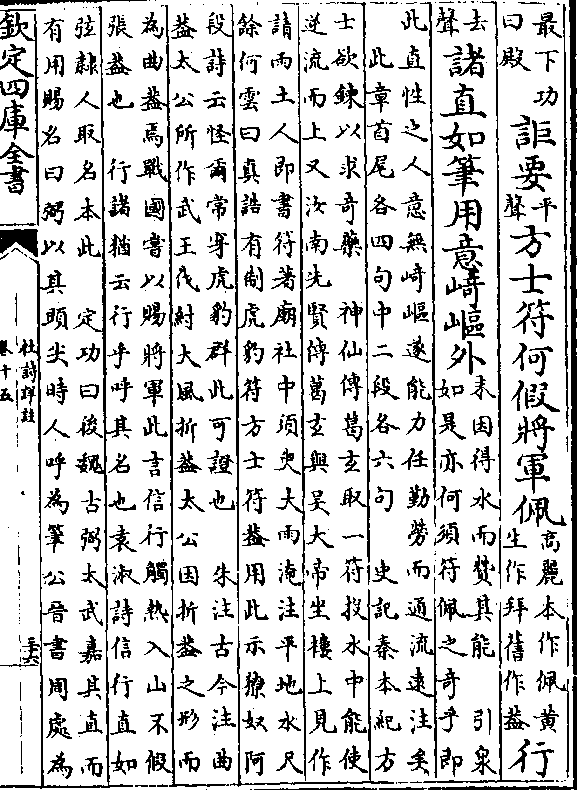 最下功
曰殿
詎要
平
聲
方士符何假將軍佩
高麗本作佩黄
生作拜舊作葢
行
去
聲
諸直如筆用意崎嶇外
末因得水而贊其能 引泉
如是亦何須符佩之奇乎即
此直性之人意無崎嶇遂能力任勤勞而通流遠注矣
此章首尾各四句中二段各六句 史記秦本紀方
士欲鍊以求奇藥 神仙傳葛玄取一符投水中能使
逆流而上又汝南先賢傳葛玄與吴大帝坐樓上見作
請雨土人即書符著廟社中須臾大雨淹注平地水尺
餘何雲曰真誥有制虎豹符方士符葢用此示獠奴阿
段詩云怪爾常穿虎豹群此可證也 朱注古今注曲
葢太公所作武王伐紂大風折葢太公因折葢之形而
為曲葢焉戰國嘗以賜將軍此言信行觸熱入山不假
張葢也 行諸猶云行乎呼其名也袁淑詩信行直如
弦隷人取名本此 定功曰後魏古弼太武嘉其直而
有用賜名曰弼以其頭尖時人呼為筆公晉書周處為
欽定四庫全書
杜詩詳註
卷十五
三六